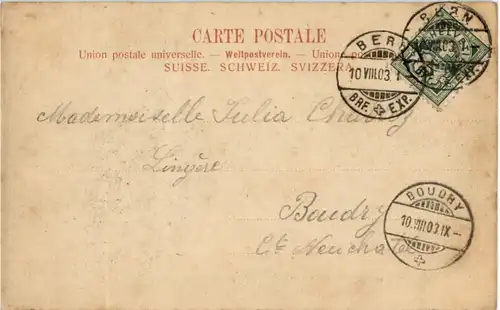 CARTE POSTALE
Union postale universelle. — Weltpostverein. — Unione po
SUISSE. SCHWEIZ. SVIZZERA
BERN
10 VIII.03
BRF. EXP.
Mademoiselle Julia
Lingère
Boudry
Ct. Neuchâtel
BOUDRY
10.VIII 03 IX –